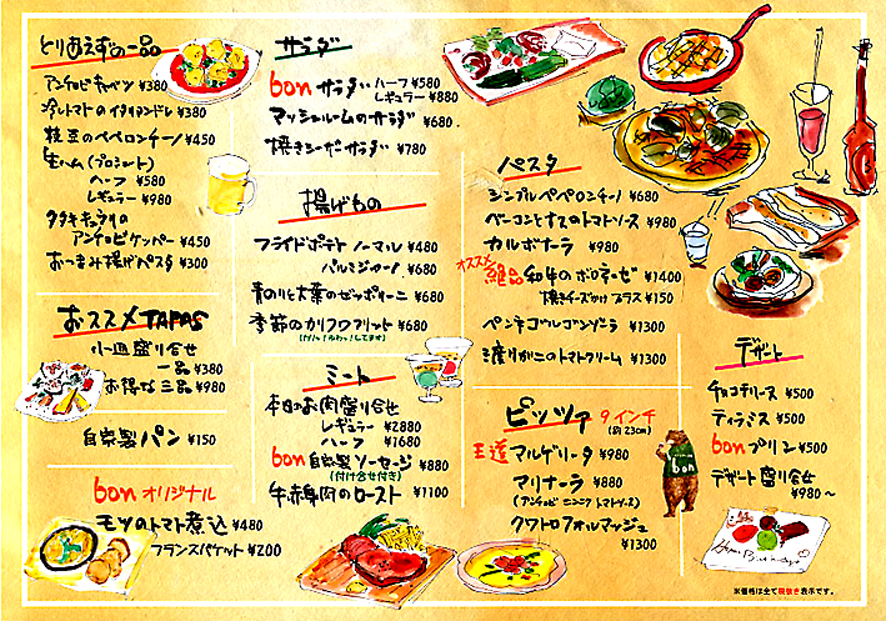 とりあえずの一品
アンチョビキャベツ ¥380
冷しトマトのイタリアンドレ ¥380
枝豆のペペロンチーノ ¥450
生ハム(プロシュート)
ハーフ ¥580
レギュラー ¥980
タタキキュウリの
アンチョビケッパー ¥450
おつまみ揚げパスタ ¥300
おススメTAPAS
小皿盛り合せ
一品 ¥380
お得な三品 ¥980
自家製パン ¥150
bonオリジナル
モツのトマト煮込 ¥480
フランスバケット ¥200
サラダ
bonサラダ ハーフ ¥580
レギュラー ¥880
マッシュルームのサラダ ¥680
焼きシーザーサラダ ¥780
揚げもの
フライドポテト ノーマル ¥480
パルミジャーノ ¥680
青のりと大葉のゼッポリーニ ¥680
季節のカリフロフリット ¥680
ミート
本日のお肉盛り合せ
レギュラー ¥2880
ハーフ ¥1680
bon自家製ソーセージ ¥880
(付け合せ付き)
牛赤身肉のロースト ¥1100
パスタ
シンプルペペロンチーノ ¥680
ベーコンとナスのトマトソース ¥980
カルボナーラ ¥980
オススメ
絶品 和牛のボロネーゼ ¥1400
焼きチーズかけ プラス ¥150
ペンネゴルゴンゾーラ ¥1300
渡りガニのトマトクリーム ¥1300
ピッツァ 9インチ
(約23cm)
王道 マルゲリータ ¥980
マリナーラ ¥880
(アンチョビ ニンニク トマトソース)
クワトロフォルマッジュ
¥1300
bon
デザート
チョコテリーヌ ¥500
ティラミス ¥500
bonプリン ¥500
デザート盛り合せ
¥980〜
Happy Birthday
※価格は全て税抜き表示です。